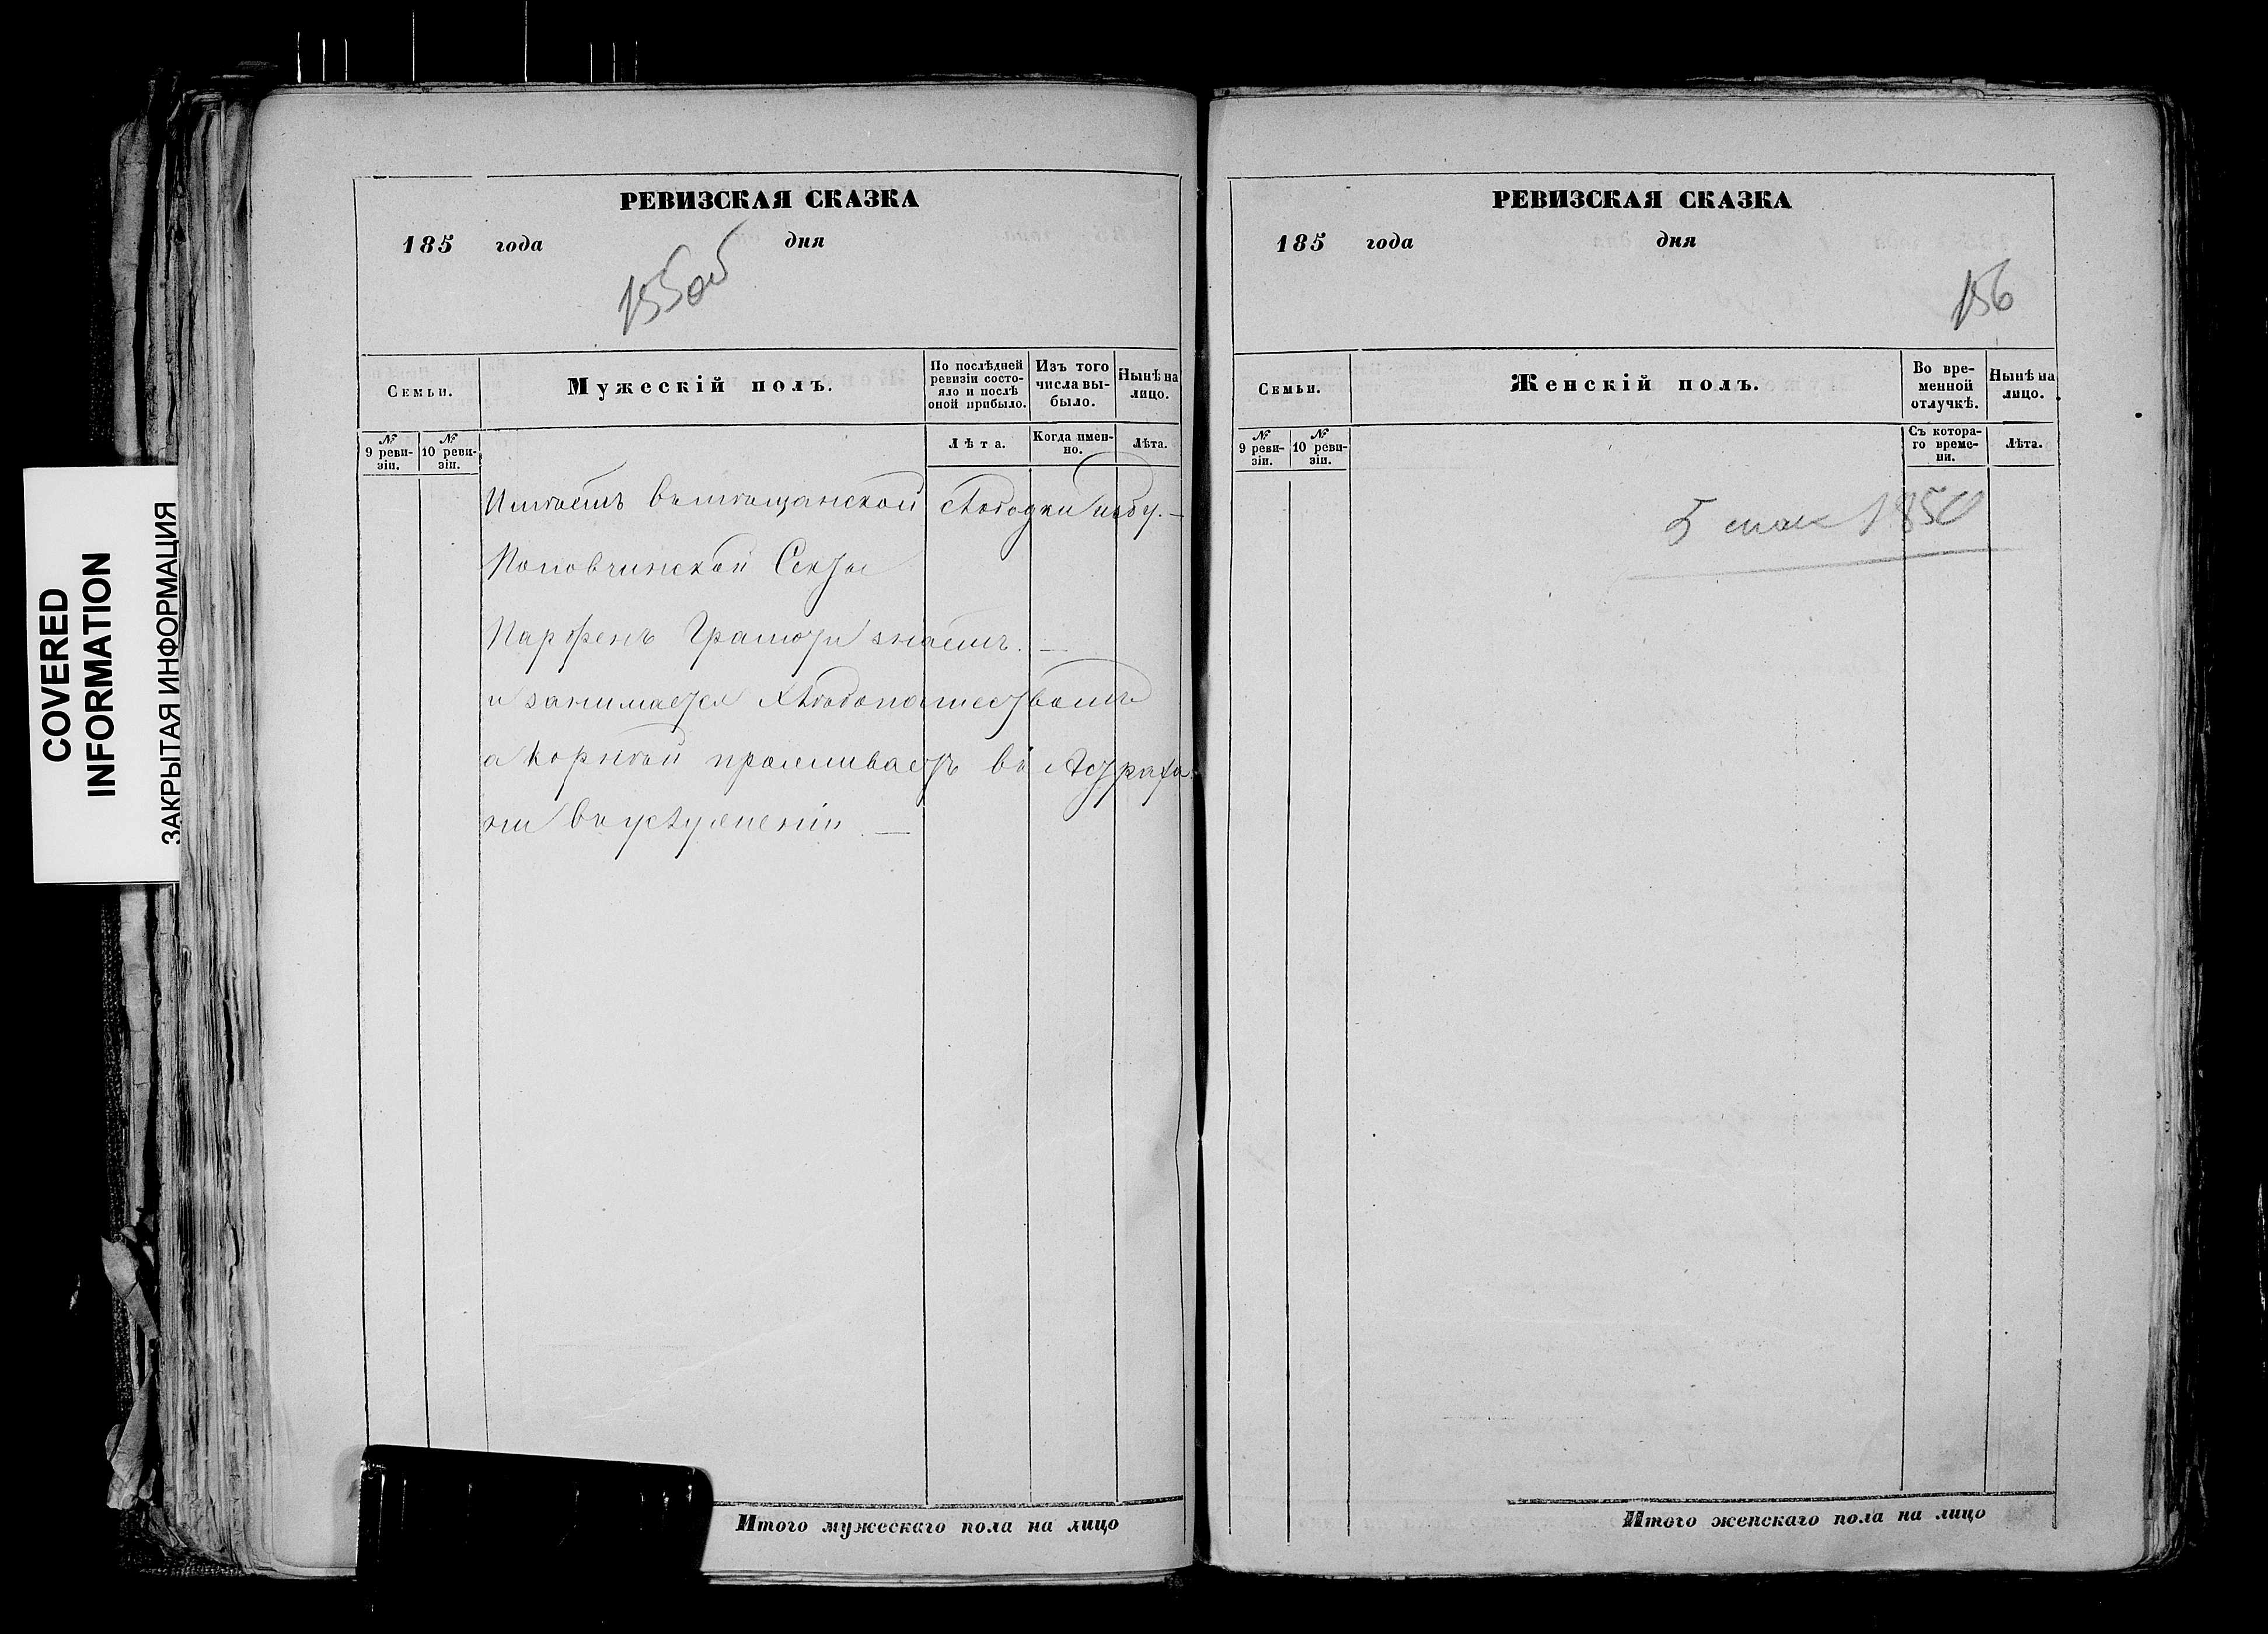 COVERED
INFORMATION
ЗАКРЫТАЯ ИНФОРМАЦИЯ
РЕВИЗСКАЯ СКАЗКА
185 года дня
155об
Семьи.
Мужескій полъ.
По послѣдней ревизіи состояло и послѣ оной прибыло.
Изъ того числа выбыло.
Нынѣ на лицо.
№ 9 ревизіи.
№ 10 ревизіи.
Лѣта.
Когда именно.
Лѣта.
Имѣетъ въ мѣщанской Слободки избу. —
Поповчинской Секты
Парфенъ Грамоту знаетъ. —
и занимается хлѣбопашествомъ
а Корнѣй проживаетъ въ Астраха
ни въ услуженіи. —
Итого мужескаго пола на лицо
РЕВИЗСКАЯ СКАЗКА
185 года дня
156
Семьи.
Женскій полъ.
Во временной отлучкѣ.
Нынѣ на лицо.
№ 9 ревизіи.
№ 10 ревизіи.
Съ котораго времени.
Лѣта.
5 мая 1850
Итого женскаго пола на лицо